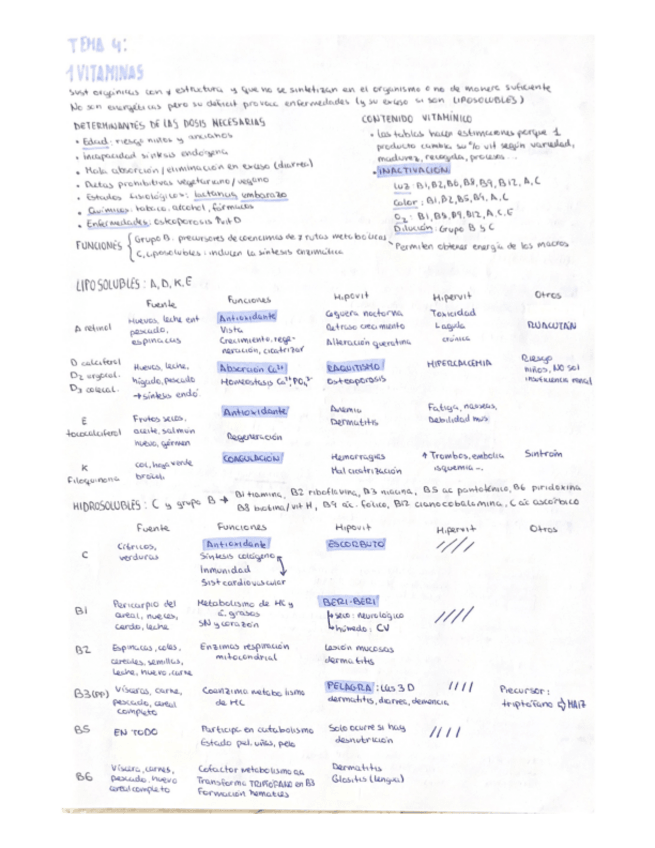 TEMA 4:
1 VITAMINAS
Sust orgánicas con ≠ estructura y que no se sintetizan en el organismo o no de manera suficiente
No son energéticas pero su déficit provoca enfermedades (y su exceso si son LIPOSOLUBLES)
DETERMINANTES DE LAS DOSIS NECESARIAS
• Edad: riesgo niños y ancianos
• Incapacidad síntesis endógena
• Mala absorción/eliminación en exceso (diarrea)
• Dietas prohibitivas vegetariano/vegano
• Estados fisiológicos: lactancia, embarazo
• Químicos: tabaco, alcohol, fármacos
• Enfermedades: osteoporosis D
CONTENIDO VITAMÍNICO
• Las tablas hacen estimaciones porque 1
producto cambia su % vit según variedad,
madurez, recogida, proceso...
• INACTIVACIÓN
Luz: B1, B2, B6, B8, B9, B12, A, C
Calor: B1, B2, B5, B9, A, C
O2: B1, B5, B9, B12, A, C, E
Dilución: Grupo B y C
FUNCIONES
Grupo B: precursores de coenzimas de ≠ rutas metabólicas
C, liposolubles: inducen la síntesis enzimática
Permiten obtener energía de los macros
LIPOSOLUBLES: A, D, K, E
Fuente Funciones Hipovit Hipervit Otros
A retinol
Huevos, leche ent
pescado,
espinacas
Antioxidante
Vista
Crecimiento, rege-
neración, cicatrizar
Ceguera nocturna
Retraso crecimiento
Alteración queratina
Toxicidad
Aguda
crónica
ROACUTAN
D calciferol
D2 ergocal.
D3 colecal.
Huevos, leche,
hígado, pescado
→ síntesis endo
Absorción Ca2+
Homeostasis Ca2+ PO4 3-
RAQUITISMO
Osteoporosis
HIPERCALCEMIA
Riesgo
niños, NO sol
insuficiencia renal
E
tocoferol
Frutos secos,
aceite, salmón
huevo, gérmen
Antioxidante
Regeneración
Anemia
Dermatitis
Fatiga, nauseas,
Debilidad mus
K
Filoquinona
col, hoja verde
brócoli
COAGULACIÓN
Hemorragias
Mal cicatrización
↑ Trombos, embolia
isquemia
Sintrom
HIDROSOLUBLES: C y grupo B → B1 tiamina, B2 riboflavina, B3 niacina, B5 ac pantoténico, B6 piridoxina
B8 biotina/vit H, B9 ác. fólico, B12 cianocobalamina, C ác ascórbico
Fuente Funciones Hipovit Hipervit Otros
C
Cítricos,
verduras
Antioxidante
Síntesis colágeno
Inmunidad
Sist cardiovascular
ESCORBUTO
B1
Pericarpio del
cereal, nueces,
cerdo, leche
Metabolismo de HC y
grasas
SN y corazón
BERI-BERI
seco: neurológico
húmedo: CV
B2
Espinacas, coles,
cereales, semillas,
leche, huevo, carne
Enzimas respiración
mitocondrial
Lesión mucosas
dermatitis
B3 (PP)
Vísceras, carne,
pescado, cereal
completo
Coenzima metabolismo
de HC
PELAGRA: Las 3 D
dermatitis, diarrea, demencia
Precursor:
triptófano
B5
EN TODO
Participa en catabolismo
Estado piel, uñas, pelo
Solo ocurre si hay
desnutrición
B6
Víscera, carnes,
pescado, huevo
cereal completo
Cofactor metabolismo aa
Transforma TRIPTÓFANO en B3
Formación hematíes
Dermatitis
Glositis (lengua)